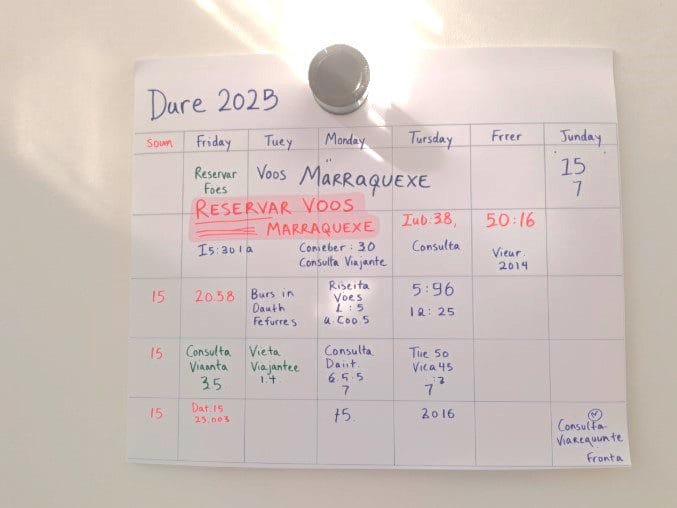 Dure 2025
Soun Friday Tuey Monday Tursday Frrer Junday
Reservar Foes
Voos MARRAQUEXE
15
7
RESERVAR VOOS
MARRAQUEXE
Iub:38,
50:16
I5:301a
Conieber: 30
Consulta Viajante
Consulta
Vieur.
2014
15
20.58
Burs in
Dauth
Fefurres
Riseita
Voes
1:5
a.Coo.5
5:96
12:25
15
Consulta
Viaanta
35
Vieta
Viajantee
1.t
Consulta
Daut.
6.5.5
7
Tue 50
Vica 45
:3
7
15
Dat.15
25.003
75.
2016
Consulta
Fronta